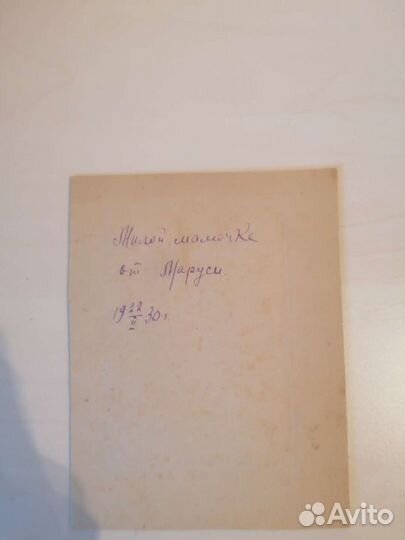 Милой мамочке
от Маруси.
19 22/II 30 г.
Avito